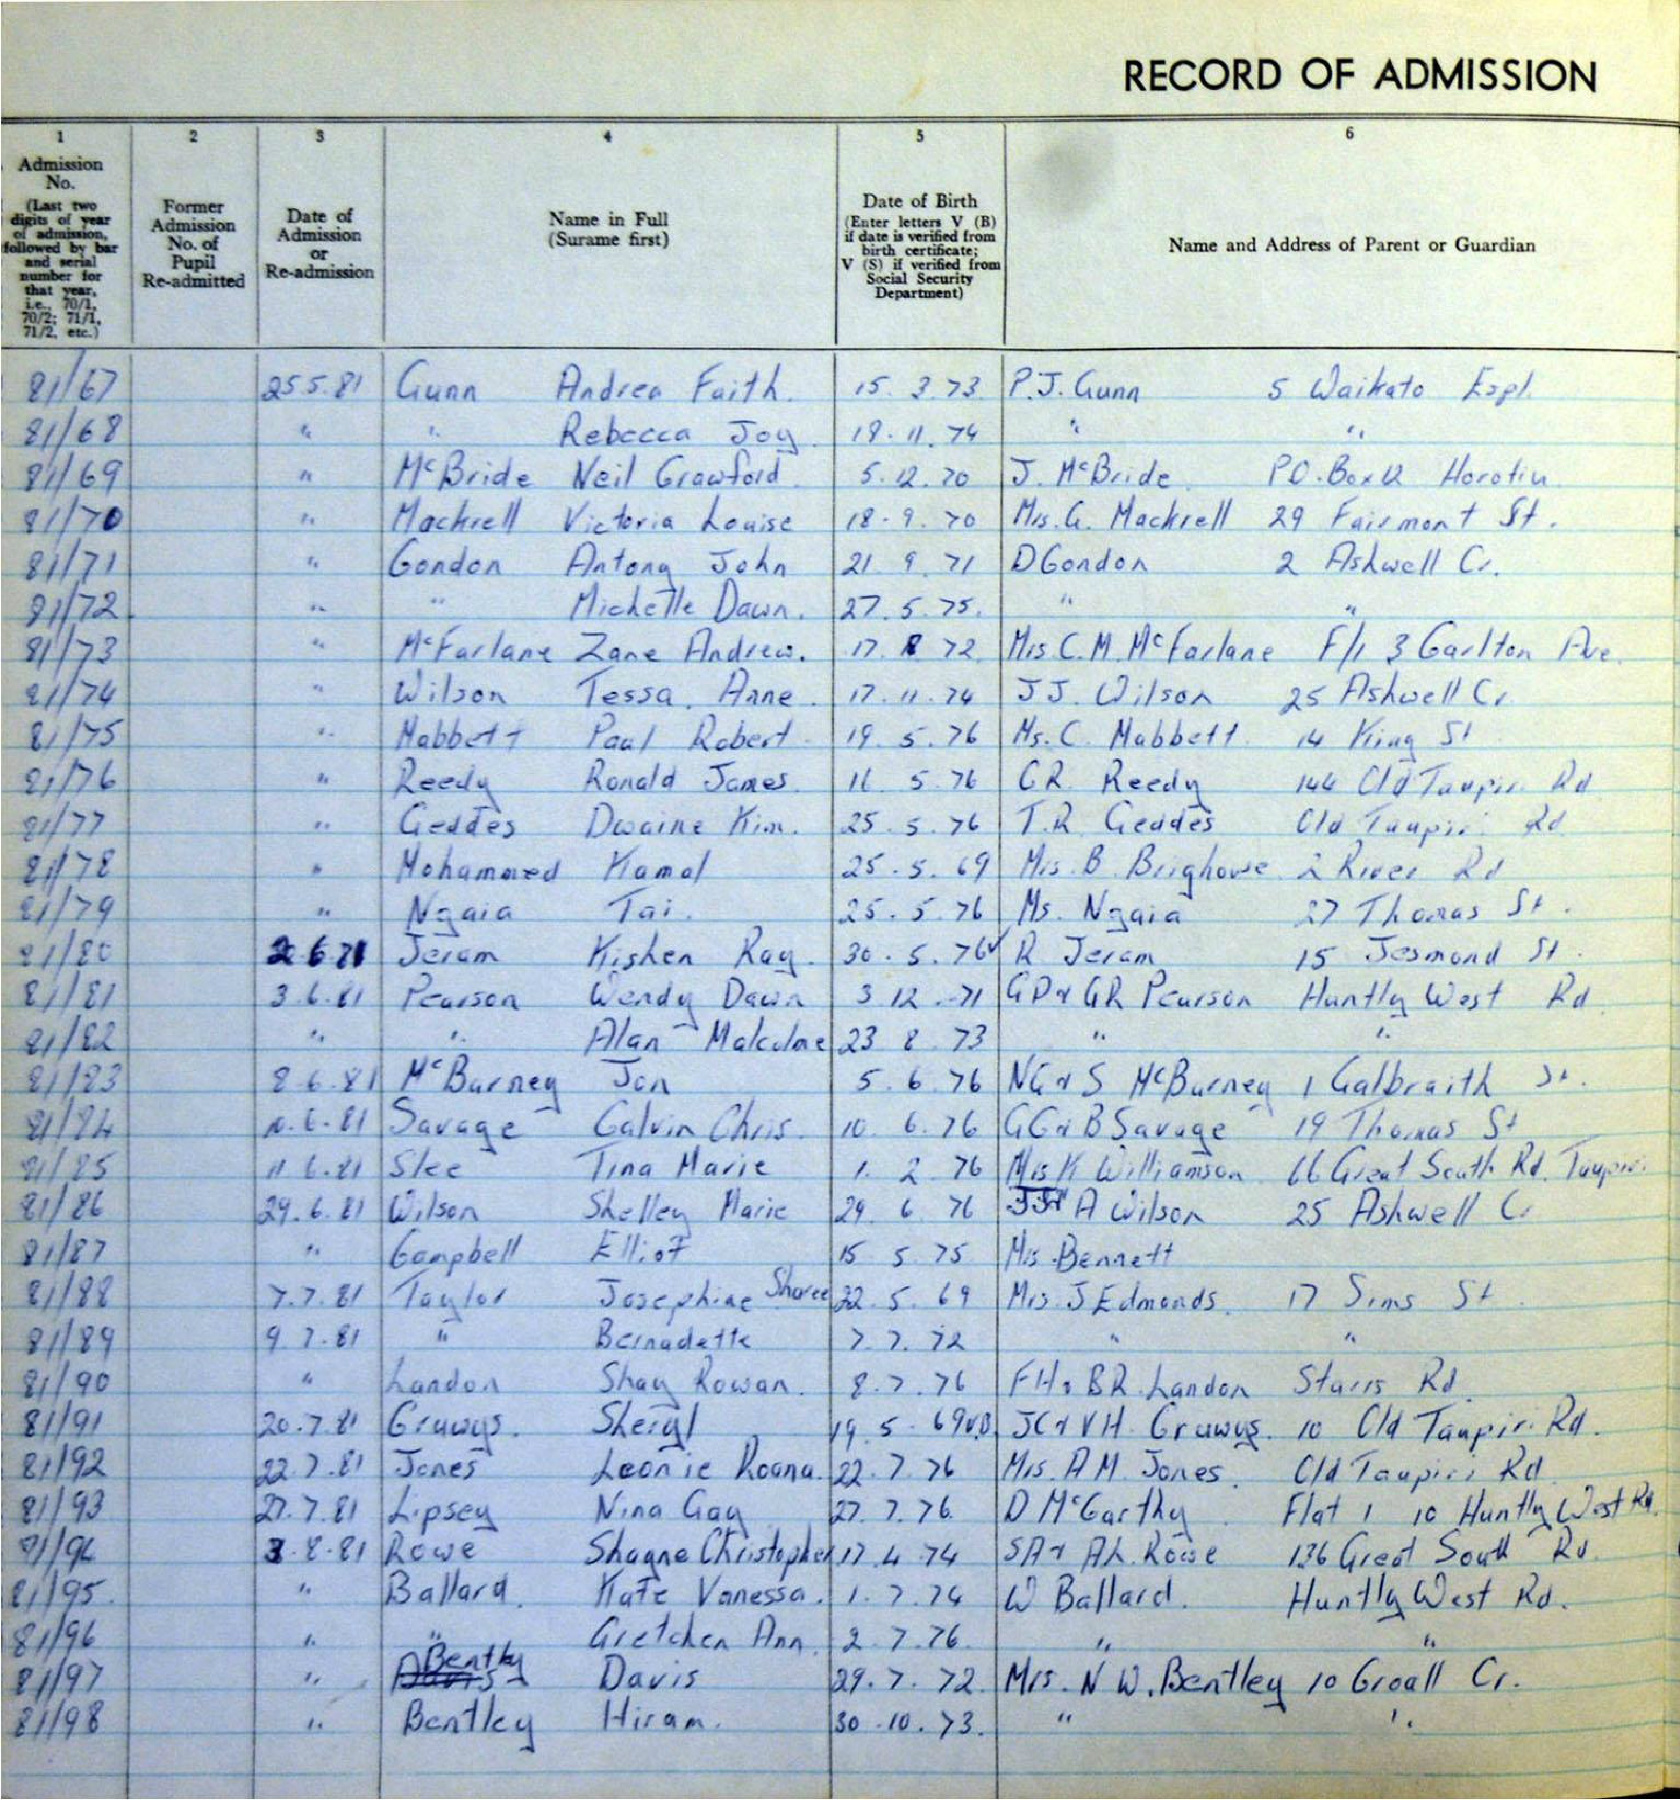 RECORD OF ADMISSION
1 2 3 4 5 6
Admission No. (Last two digits of year of admission, followed by bar and serial number for that year, i.e., 70/1, 70/2; 71/1, 71/2, etc.)
Former Admission No. of Pupil Re-admitted
Date of Admission or Re-admission
Name in Full (Surame first)
Date of Birth (Enter letters V (B) if date is verified from birth certificate; V (S) if verified from Social Security Department)
Name and Address of Parent or Guardian
81/67 25.5.81 Gunn Andrea Faith. 15. 3.73. P.J. Gunn 5 Waikato Espl.
81/68 " " Rebecca Joy. 18.11.74 " "
81/69 " McBride Neil Crawford 5.12.70 J. McBride. P.O. Box 12 Horotiu
81/70 " Mackrell Victoria Louise 18.9.70 Mrs. G. Mackrell 29 Fairmont St.
81/71 " Gondon Antony John 21 9.71 D Gondon 2 Ashwell Cr.
81/72. " " Michelle Dawn. 27.5.75. " "
81/73 " McFarlane Zane Andrew. 17 8 72 Mrs C.M. McFarlane F/1 3 Carlton Ave.
81/74 " Wilson Tessa. Anne. 17.11.74 J J. Wilson 25 Ashwell Cr.
81/75 " Mabbett Paul Robert 19.5.76 Ms. C. Mabbett. 14 King St
81/76 " Reedy Ronald James. 16 5.76 C R. Reedy 144 Old Taupiri Rd
81/77 " Geddes Dwaine Kim. 25.5.76 T.R. Geddes Old Taupiri Rd
81/78 " Mohammed Kamal 25.5.69 Mrs. B. Brighouse. 2 River Rd
81/79 " Ngaia Tai. 25.5.76 Ms. Ngaia 27 Thomas St.
81/80 2.6.81 Jeram Kishen Ray. 30.5.76 R Jeram 15 Jesmond St.
81/81 3.6.81 Pearson Wendy Dawn 3 12.71 G D & G R Pearson Huntly West Rd
81/82 " " Alan Malcolme 23 8.73 " "
81/83 8.6.81 McBurney Jon 5.6.76 NG & S McBurney 1 Galbraith St.
81/84 10.6.81 Savage Calvin Chris. 10. 6.76 G C & B Savage 19 Thomas St
81/85 11.6.81 Slee Tina Marie 1. 2.76 Mrs K Williamson 66 Great South Rd. Taupiri
81/86 29.6.81 Wilson Shelley Marie 29. 6 76 JJ & A Wilson 25 Ashwell Cr
81/87 " Campbell Elliot 15 5.75 Mrs. Bennett
81/88 7.7.81 Taylor Josephine Sharee 22.5.69 Mrs. J Edmonds. 17 Sims St.
81/89 9.7.81 " Bernadette 7.7.72 " "
81/90 " Landon Shay Rowan. 8.7.76 F H & B R. Landon Starrs Rd
81/91 20.7.81 Gruwys. Sheryl 19.5.69 V.B. JC & V H. Gruwys. 10 Old Taupiri Rd.
81/92 22.7.81 Jones Leonie Roana. 22.7.76 Mrs. A M. Jones. Old Taupiri Rd
81/93 27.7.81 Lipsey Nina Gay 27.7.76. D McCarthy. Flat 1 10 Huntly West Rd.
81/94 3.8.81 Rowe Shayne Christopher 17.4.74 S A & A L. Rowe 136 Great South Rd.
81/95. " Ballard. Kate Vanessa. 1.7.74 W Ballard. Huntly West Rd.
81/96 " " Gretchen Ann. 2.7.76. " "
81/97 " Bentley Davis 29.7.72. Mrs. N W. Bentley 10 Croall Cr.
81/98 " Bentley Hiram. 30.10.73. " "